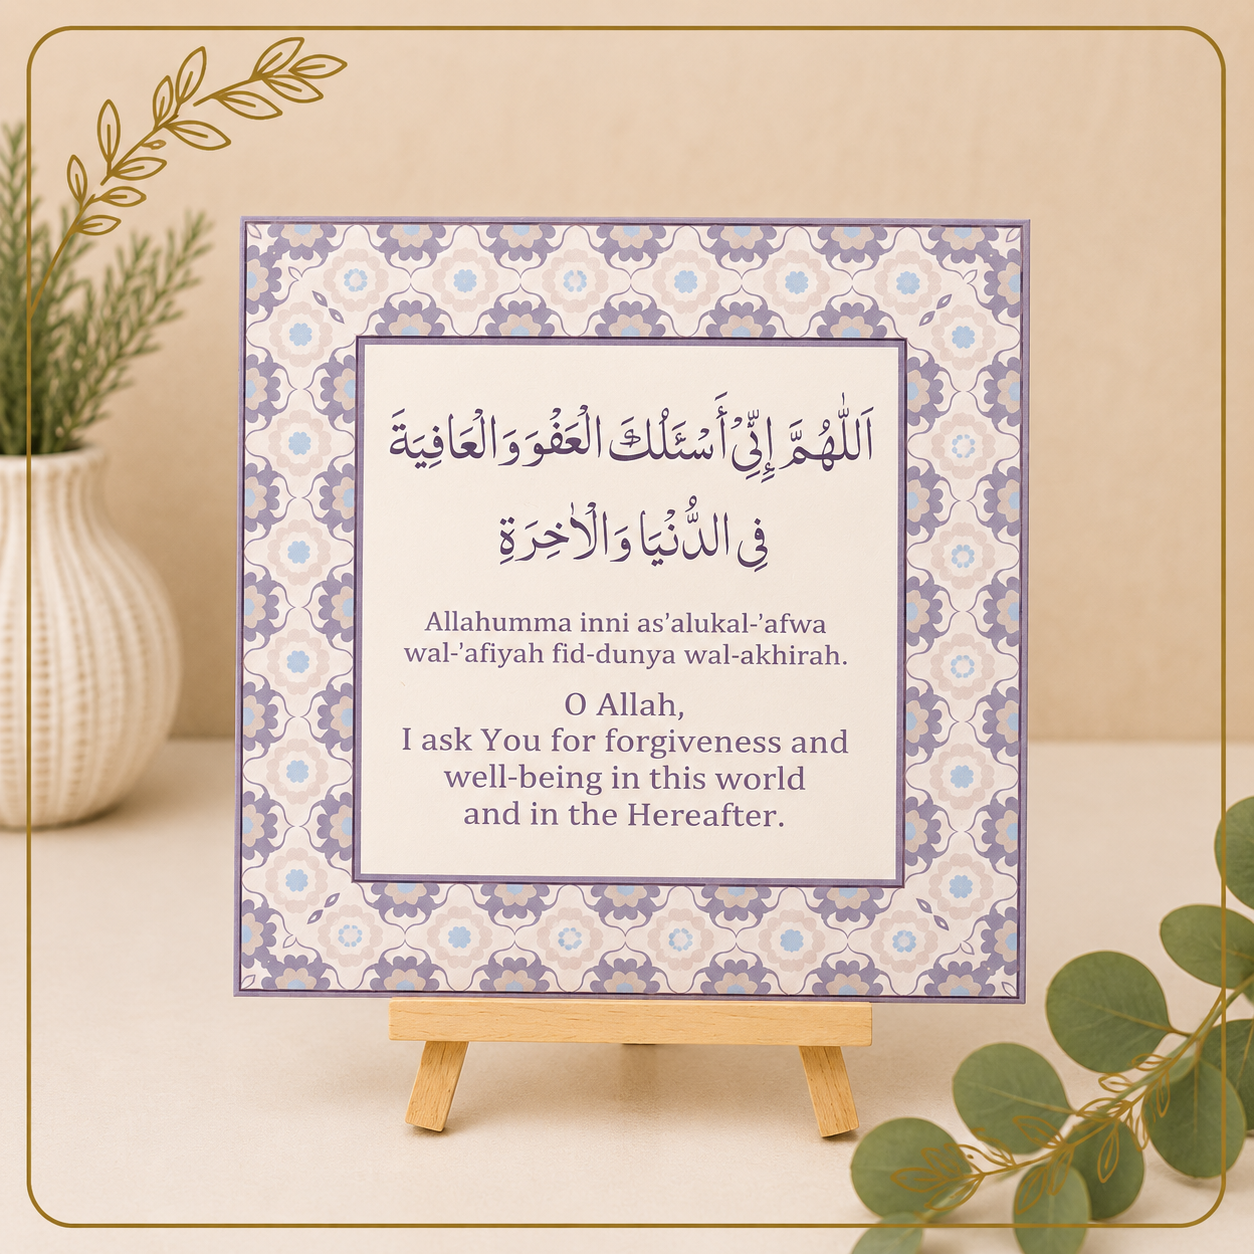 اَللّٰهُمَّ إِنِّيْ أَسْئَلُكَ الْعَفْوَ وَالْعَافِيَةَ
فِي الدُّنْيَا وَالْاٰخِرَةِ
Allahumma inni as’alukal-’afwa
wal-’afiyah fid-dunya wal-akhirah.
O Allah,
I ask You for forgiveness and
well-being in this world
and in the Hereafter.